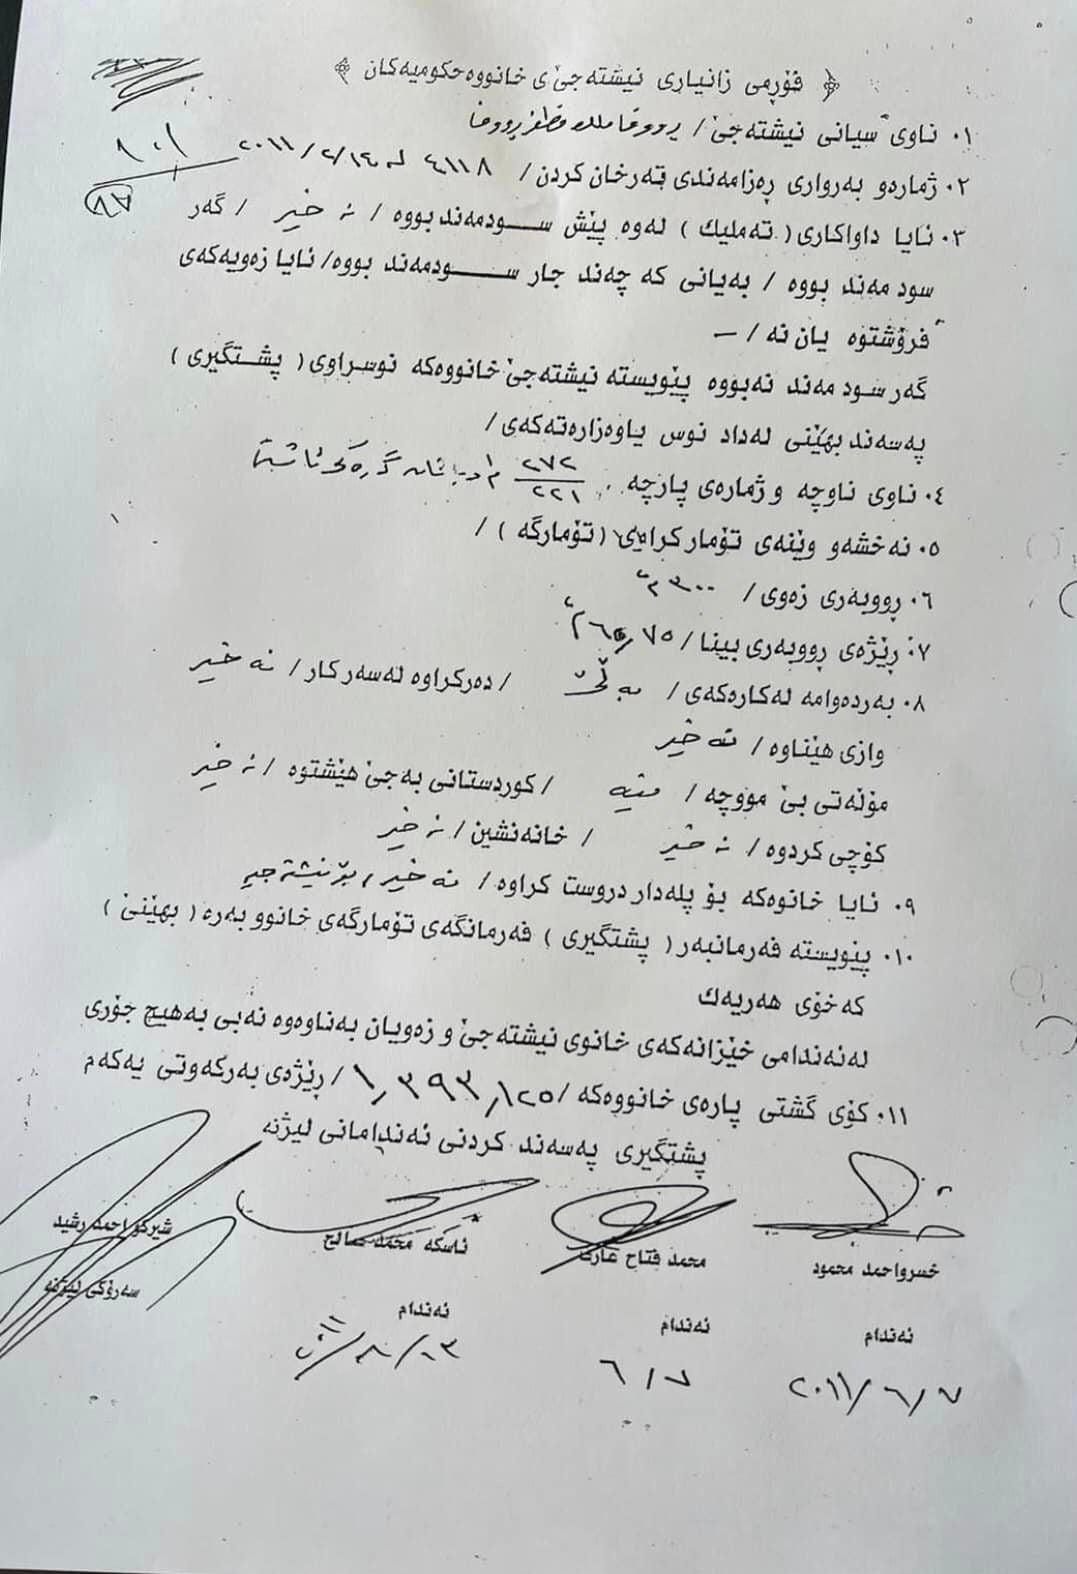 فۆڕمی زانیاری نیشتەجێی خانووە حکومیەکان
٠١ ناوی سیانی نیشتەجێ /
٠٢ ژمارەو بەرواری ڕەزامەندی تەرخان کردن / ٤١١٨ لە ٢٠١١/٢/١٤
١٠١
٨٧
٠٣ ئایا داواکاری ( تەملیك ) لەوە پێش ســـودمەند بووە / نەخێر / گەر
سود مەند بووە / بەیانی کە چەند جار ســـودمەند بووە / ئایا زەویەکەی
فرۆشتوە یان نە / —
گەر سود مەند نەبووە پێویستە نیشتەجێ خانووەکە نوسراوی ( پشـتگیری )
پەسەند بهێنی لەداد نوس یاوەزارەتەکەی /
٠٤ ناوی ناوچە و ژمارەی پارچە ٢٧٢/٢٢١ م ١ گەرەکی ئاشتی
٠٥ نەخشەو وێنەی تۆمار کراوی ( تۆمارگە ) /
٠٦ ڕووبەری زەوی / ٣٠٠ م٢
٠٧ ڕێژەی ڕووبەری بینا / ٧٥ م٢
٠٨ بەردەوامە لەکارەکەی / بەڵێ / دەرکراوە لەسەر کار / نەخێر
وازی هێناوە / نەخێر
مۆڵەتی بێ مووچە / نیە / کوردستانی بەجێ هێشتوە / نەخێر
کۆچی کردوە / نەخێر / خانەنشین / نەخێر
٠٩ ئایا خانوەکە بۆ پلەدار دروست کراوە / نەخێر ، بۆ نیشتەجێ
٠١٠ پێویستە فەرمانبەر ( پشتگیری ) فەرمانگەی تۆمارگەی خانوو بەرە ( بهێنێ )
کەخۆی هەریەك
لەئەندامی خێزانەکەی خانوی نیشتەجێ و زەویان بەناوەوە نەبی بەهیچ جۆری
٠١١ کۆی گشتی پارەی خانووەکە / ١,٣٩٣,١٢٥ / ڕێژەی بەرکەوتی یەکەم
پشتگیری پەسەند کردنی ئەندامانی لیژنە
خسرواحمد محمود محمد فتاح عارف ئاسکە محمد صالح شیرکو احمد رشید
ئەندام ئەندام ئەندام سەرۆکی لیژنە
٢٠١١/٦/٧ ٦/٧